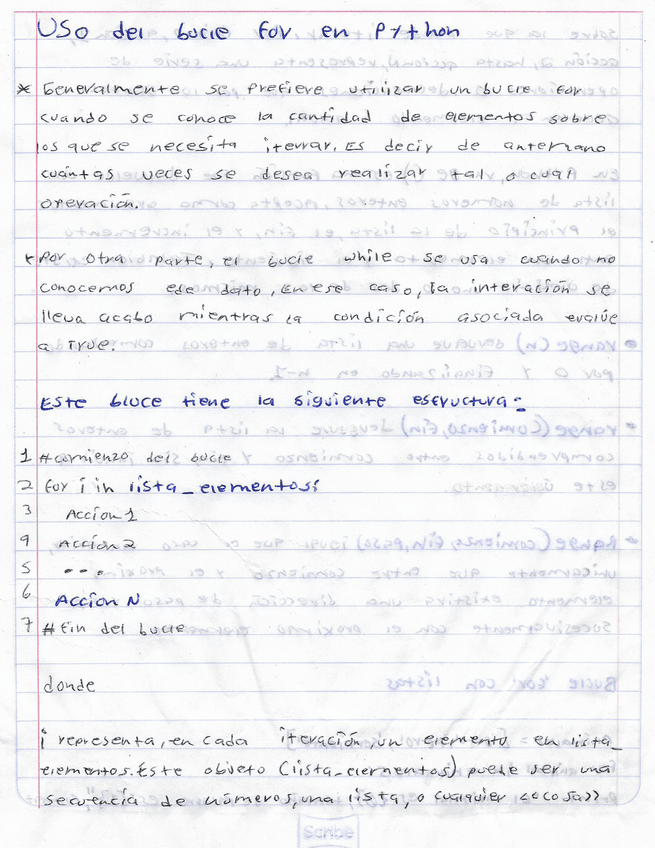 Uso del bucle for en Python
* Generalmente se prefiere utilizar un bucle for
cuando se conoce la cantidad de elementos sobre
los que se necesita iterrar. Es decir de antemano
cuántas veces se desea realizar tal o cual
operación.
* Por otra parte, el bucle while se usa cuando no
conocemos ese dato, En ese caso, la interación se
lleva acabo mientras la condición asociada evalúe
a True.
Este bluce tiene la siguiente estructura:
1 #comienzo del bucle
2 for i in lista_elementos:
3 Accion 1
4 Accion 2
5 ---
6 Accion N
7 #Fin del bucle
donde
i representa, en cada iteración, un elemento en lista_
elementos. Este objeto (lista_elementos) puede ser una
secuencia de números, una lista, o cualquier <<cosa>>
Scribe